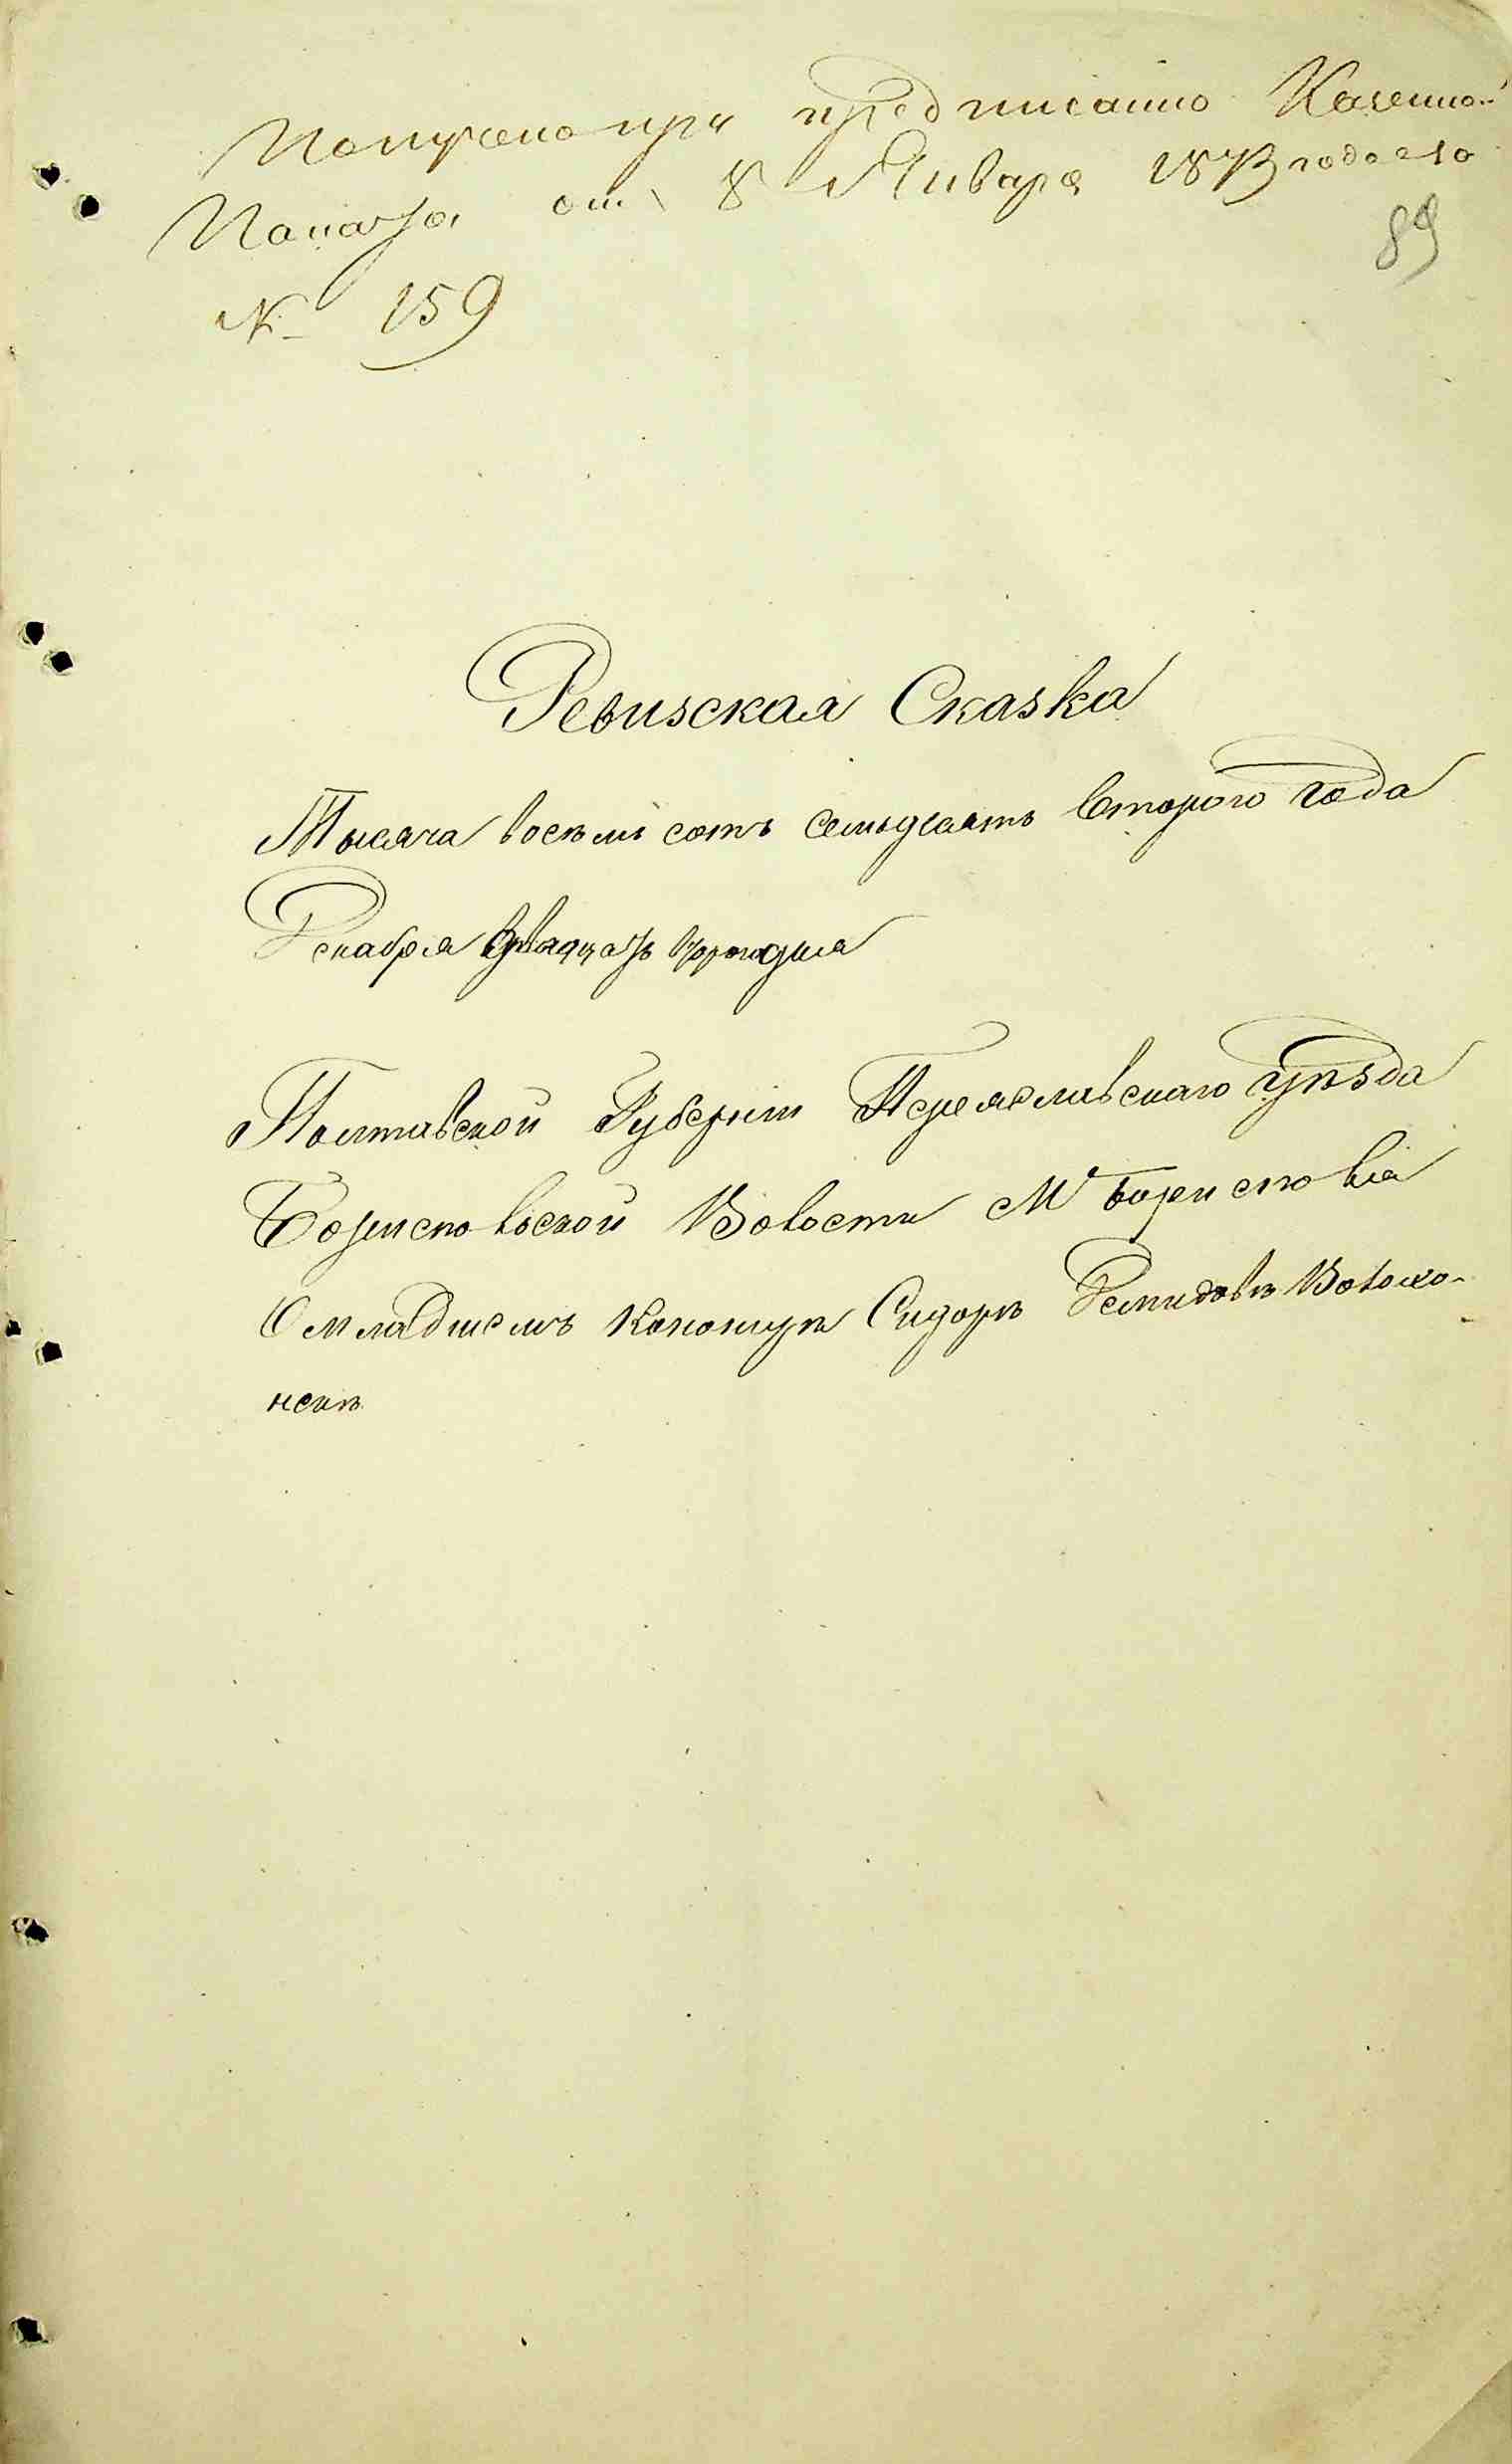 Получено при предписанио Казенной
Палаты от 8 Января 1873 года за
89
№ 159
Ревизская Сказка
Тысяча восемь сотъ семьдесятъ второго года
Декабря двадцать дня
Полтавской Губерніи Переяславскаго уѣзда
Борисповьской Волости М Борисполя
О младшемъ канонирѣ Сидорѣ Демидовѣ Волохо-
нскѣ